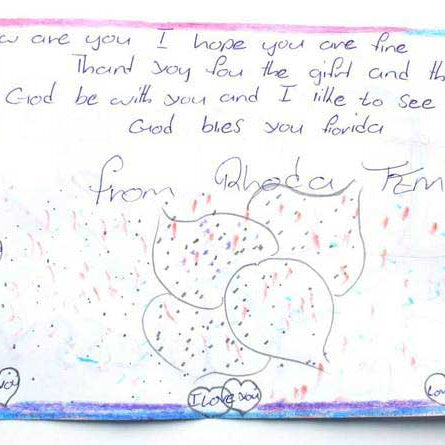 are you I hope you are fine
Thant yoy fou the gifrt and th
God be with you and I like to see
God bles you florida
from Rhoda
I Love you